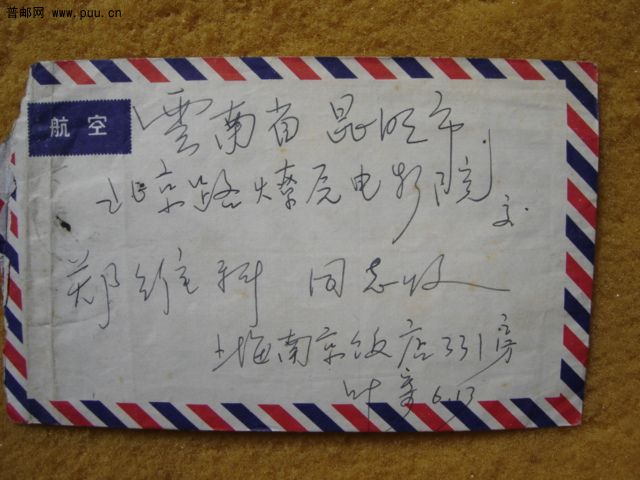 普邮网 www.puu.cn
航空
雲南省昆明市
北京路燎原电影院 交
郑维科 同志收
上海南京饭店331房
叶 6.13